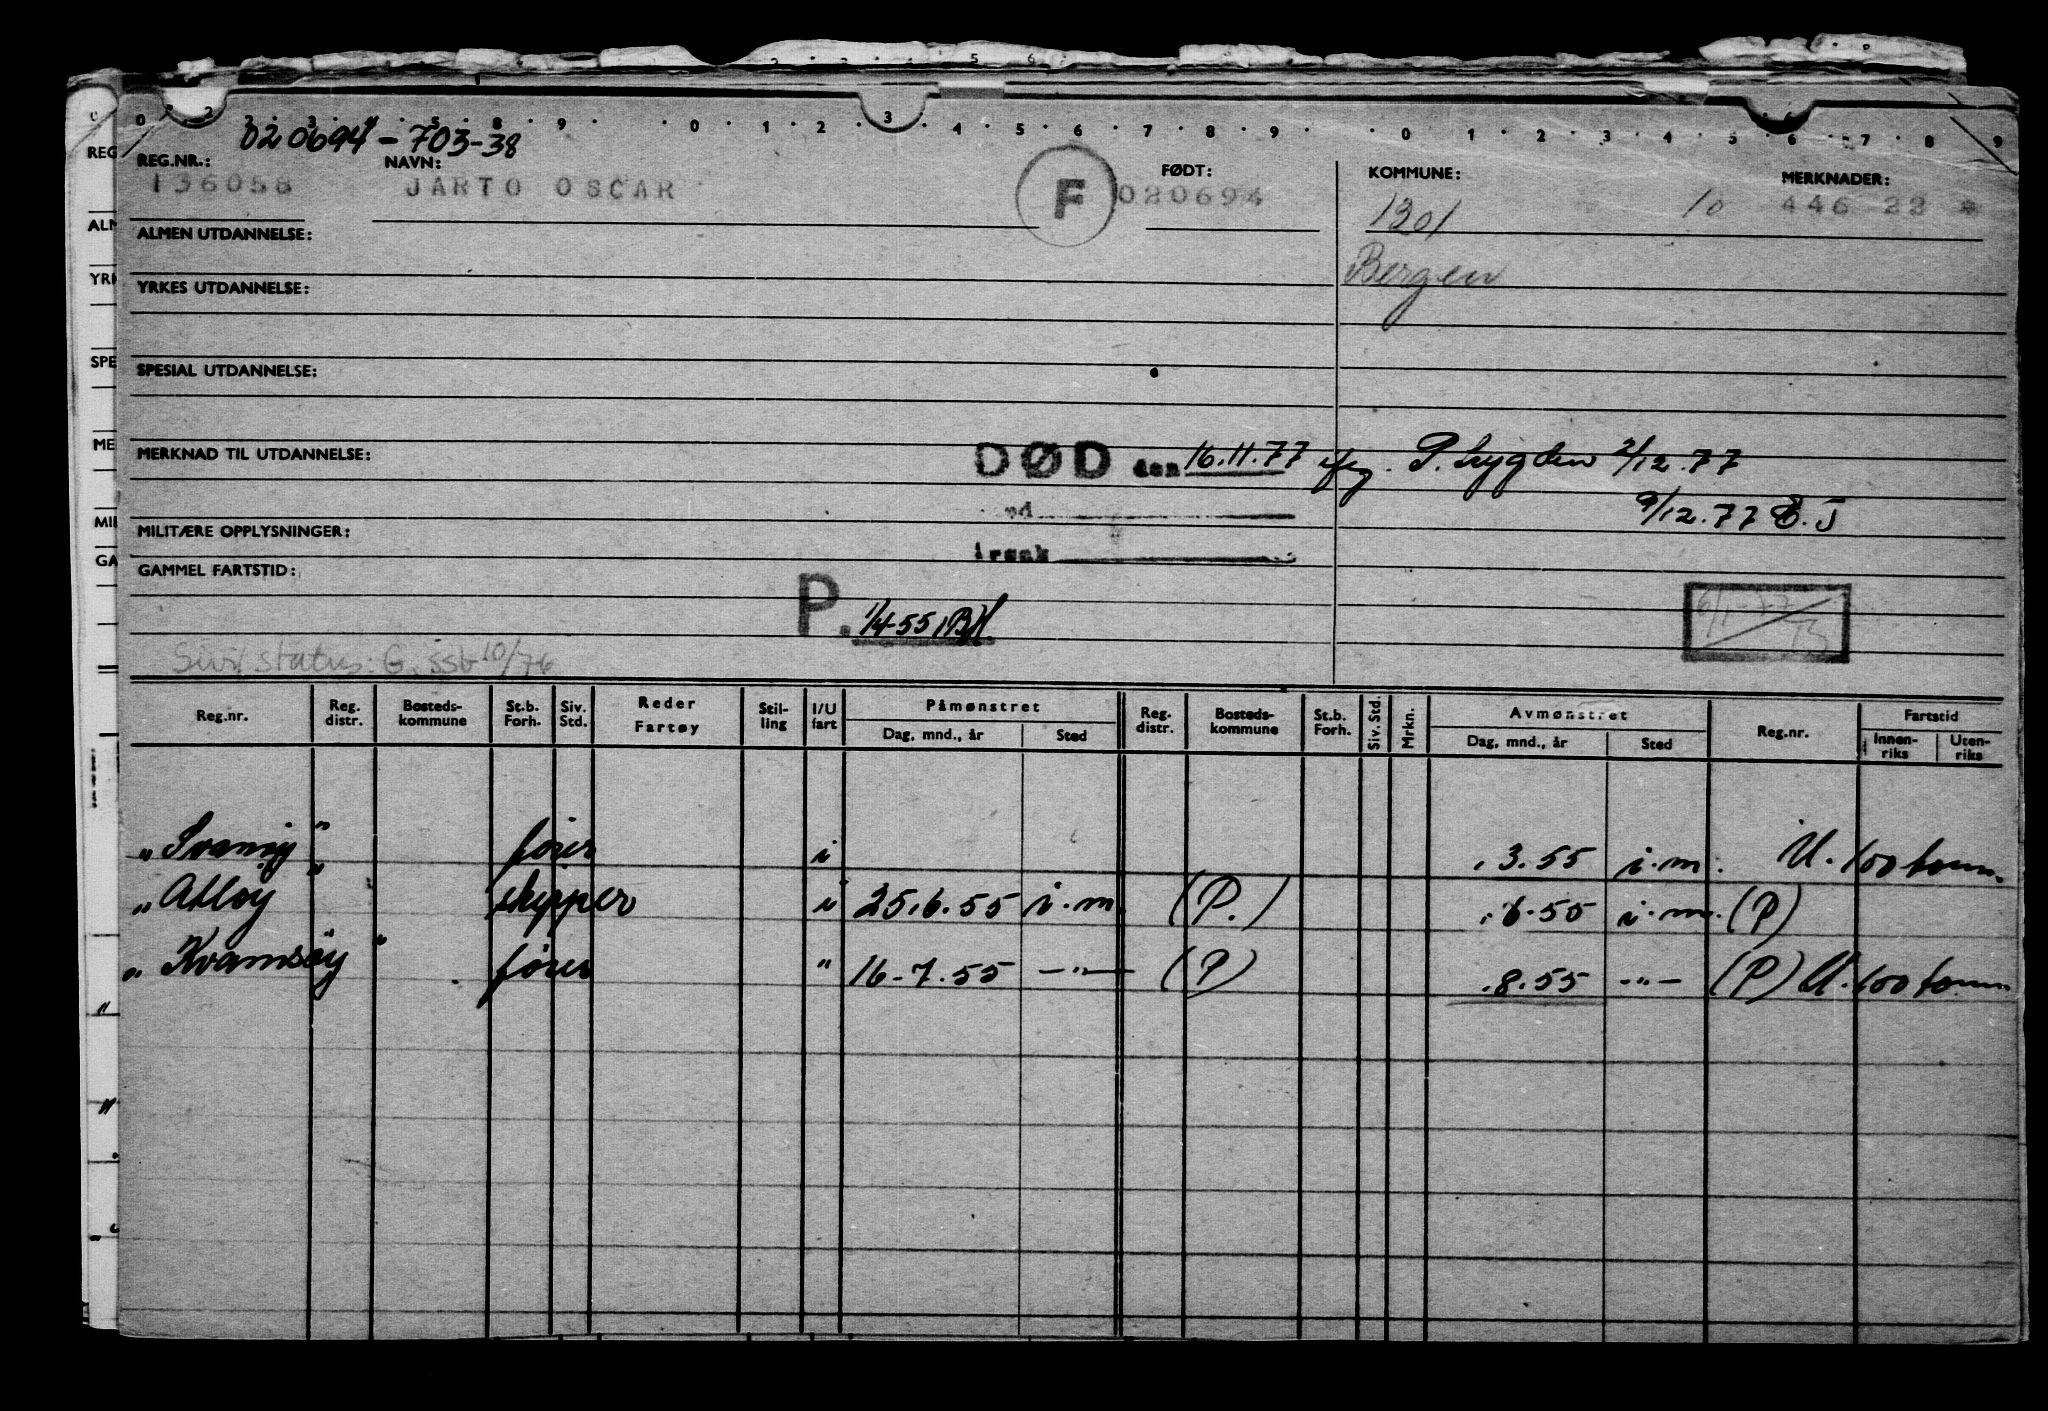 020694 - 703-38
REG.NR.: NAVN: FØDT: KOMMUNE: MERKNADER:
136058 JARTO OSCAR F 020694 1301 10 446 22 *
ALMEN UTDANNELSE:
Bergen
YRKES UTDANNELSE:
SPESIAL UTDANNELSE:
MERKNAD TIL UTDANNELSE:
DØD den 16.11.77 P. Lygden 2/12.77
9/12.77 E.J
ved
MILITÆRE OPPLYSNINGER:
årsak
GAMMEL FARTSTID:
P. 1/4-55
6/1-77
Sivilstatus: G. ssb 10/76
Reg.nr. Reg. distr. Bosteds-kommune St.b. Forh. Siv. Std. Reder Fartøy Stil-ling I/U fart Påmønstret Dag, mnd., år Sted Reg. distr. Bosteds-kommune St.b. Forh. Siv. Std. Mrkn. Avmønstret Dag, mnd., år Sted Reg.nr. Fartstid Innen-riks Uten-riks
"Svanøy" fører i . 3.55 i.m. U. 100 tonn.
"Atløy" skipper i 25.6.55 i.m. (P.) . 6.55 i.m. (P)
"Kvamsøy" fører " 16-7.55 —"— (P) . 8.55 —"— (P) U. 100 tonn